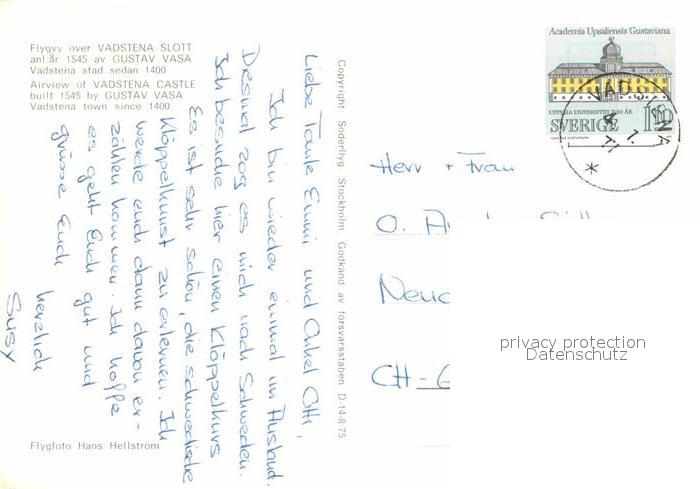 Flygvy över VADSTENA SLOTT
anl. år 1545 av GUSTAV VASA
Vadstena stad sedan 1400
Airview of VADSTENA CASTLE
built 1545 by GUSTAV VASA
Vadstena town since 1400
Liebe Tante Emmi und Onkel Otti,
Ich bin wieder einmal im Ausland.
Diesmal zog es mich nach Schweden.
Ich besuche hier einen Klöppelkurs
Es ist sehr schön, die schwedische
Klöppelkunst zu erlernen. Ich
werde euch dann davon er-
zählen kommen. Ich hoffe
es geht Euch gut und
grüsse Euch
herzlich
Susy
Flygfoto Hans Hellström
Copyright Söderflyg. Stockholm. Godkänd av försvarsstaben D-14-8-75
Academia Upsaliensis Gustaviana
UPPSALA UNIVERSITET 500 ÅR
SVERIGE 110
VADSTENA
Herr + Frau
O.
CH-
privacy protection
Datenschutz